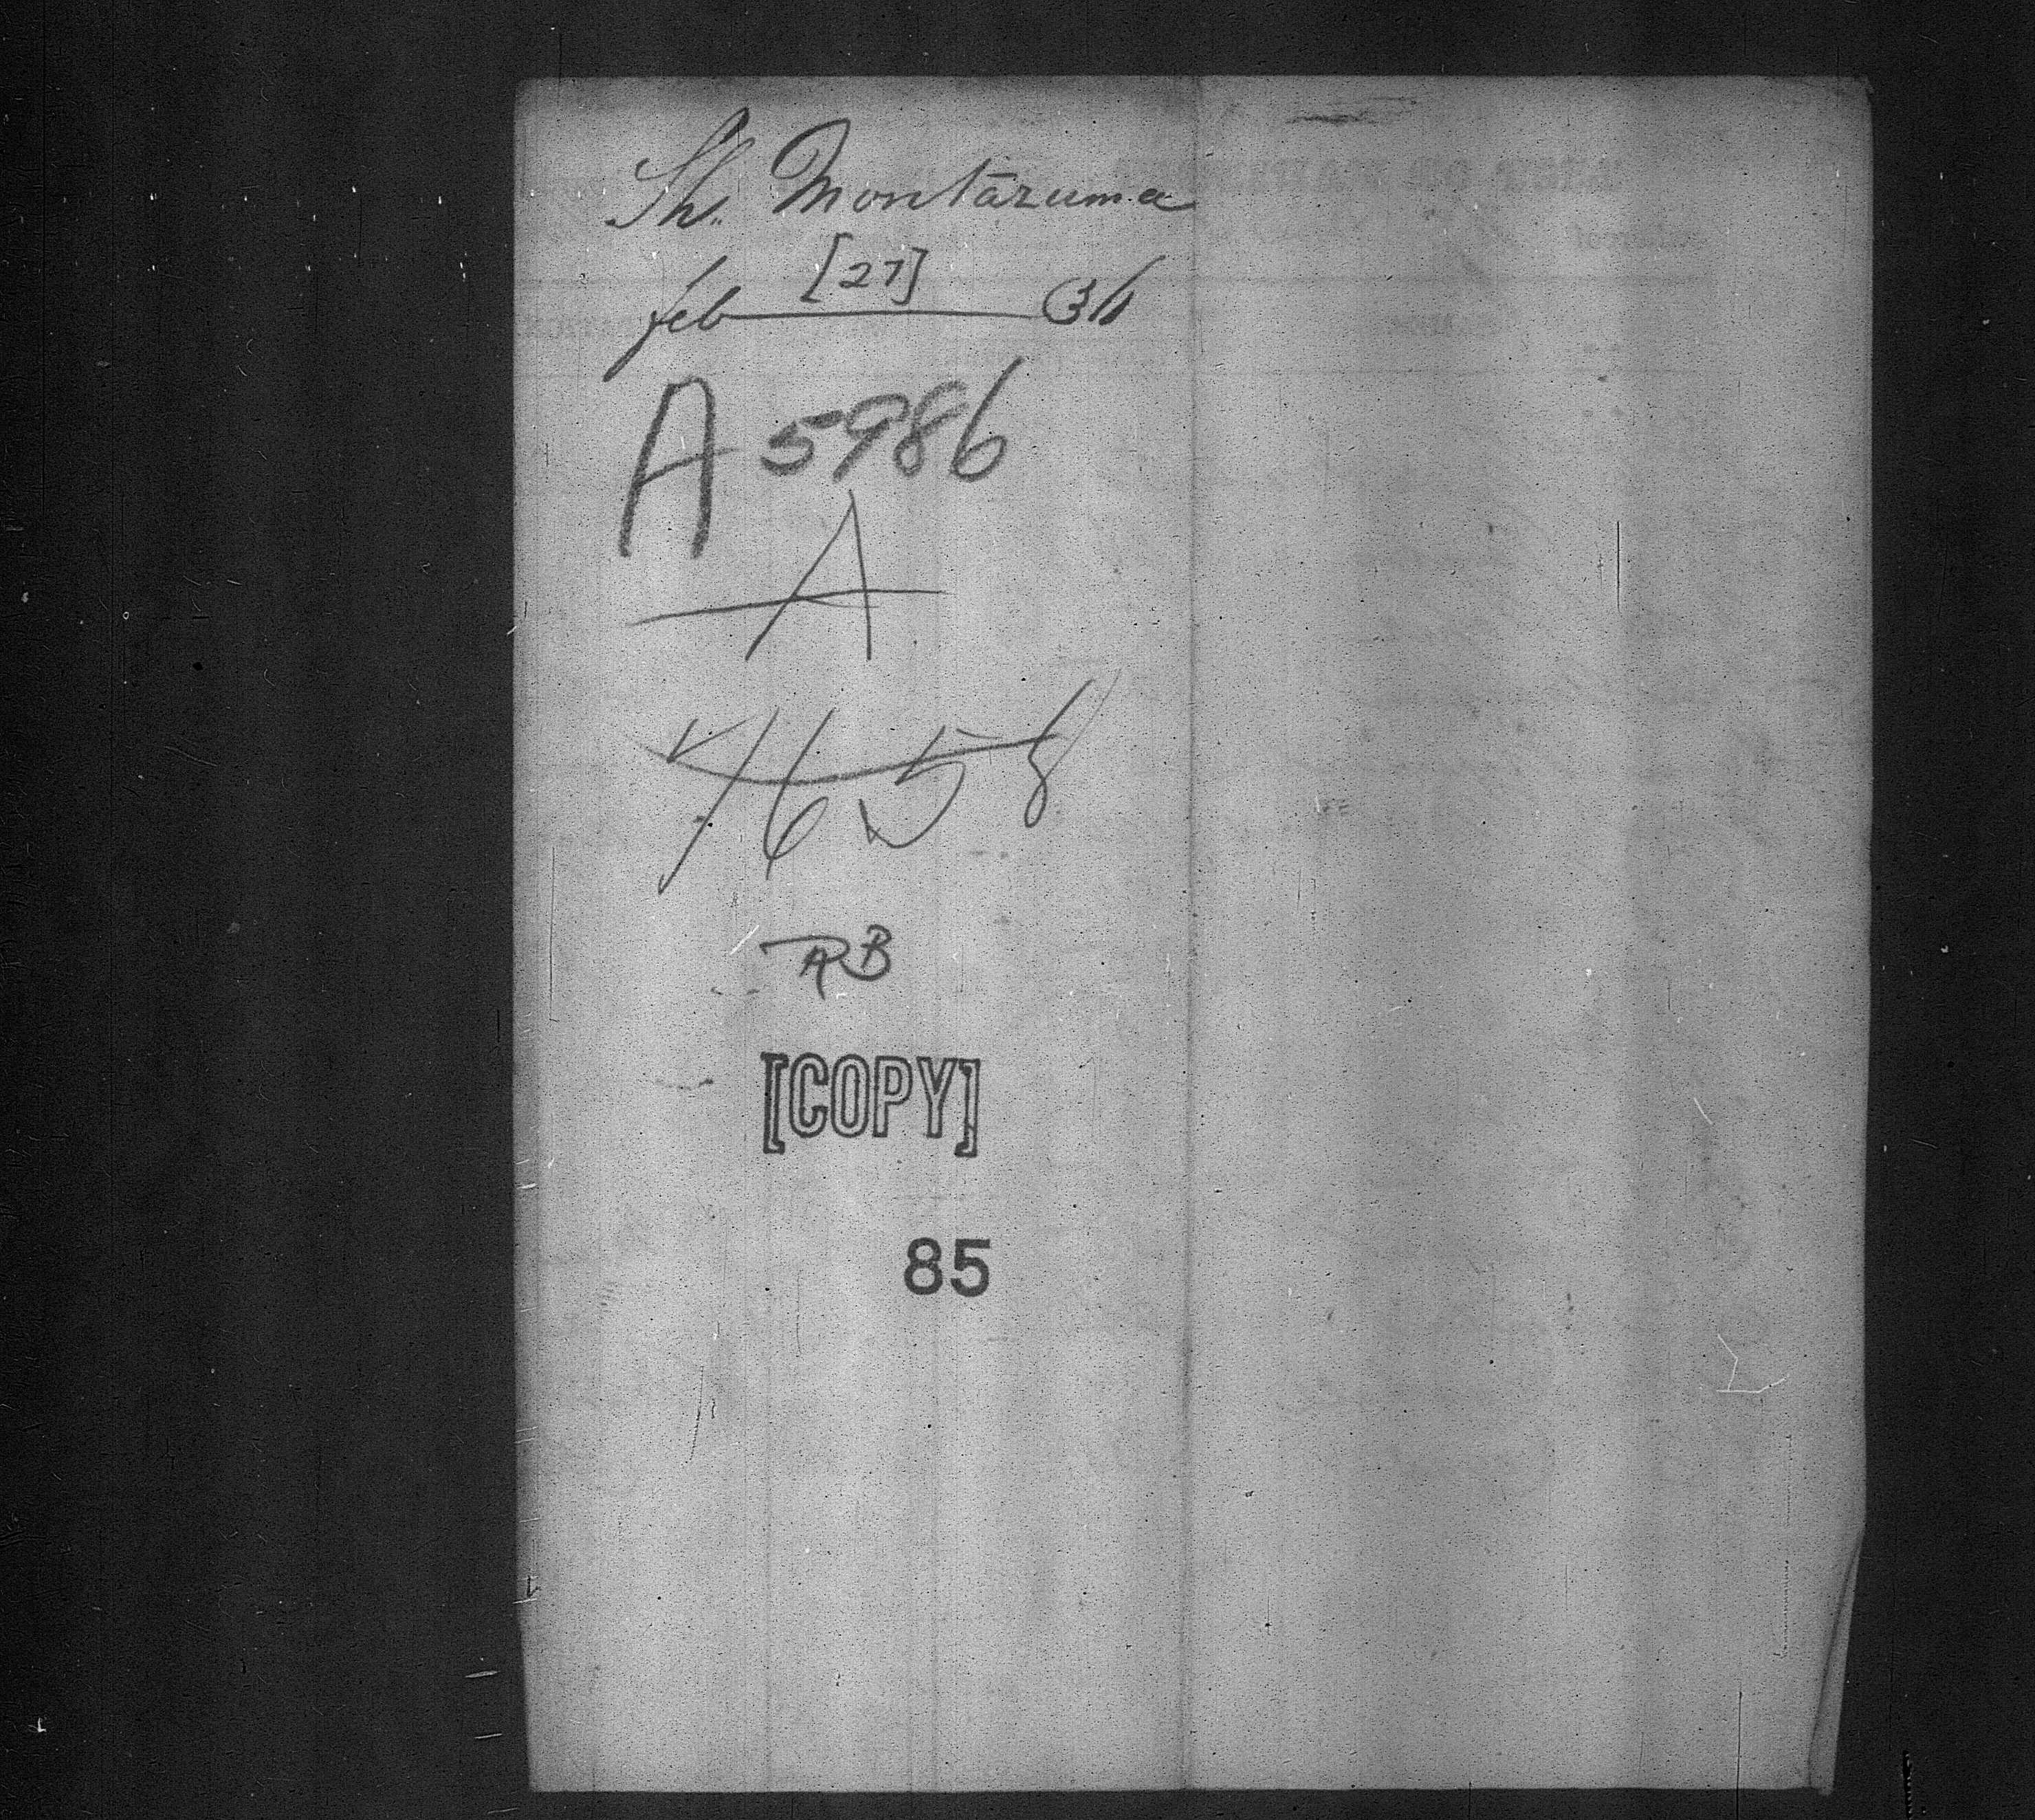 Sh. Montazuma
[27]
feb 36
A 5986
A
7658
RB
[COPY]
85